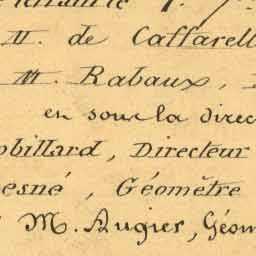 M. de Caffarell
M. Rabaux,
en sous la direc
obillard, Directeur
esné, Géomètre
M. Augier, Géom